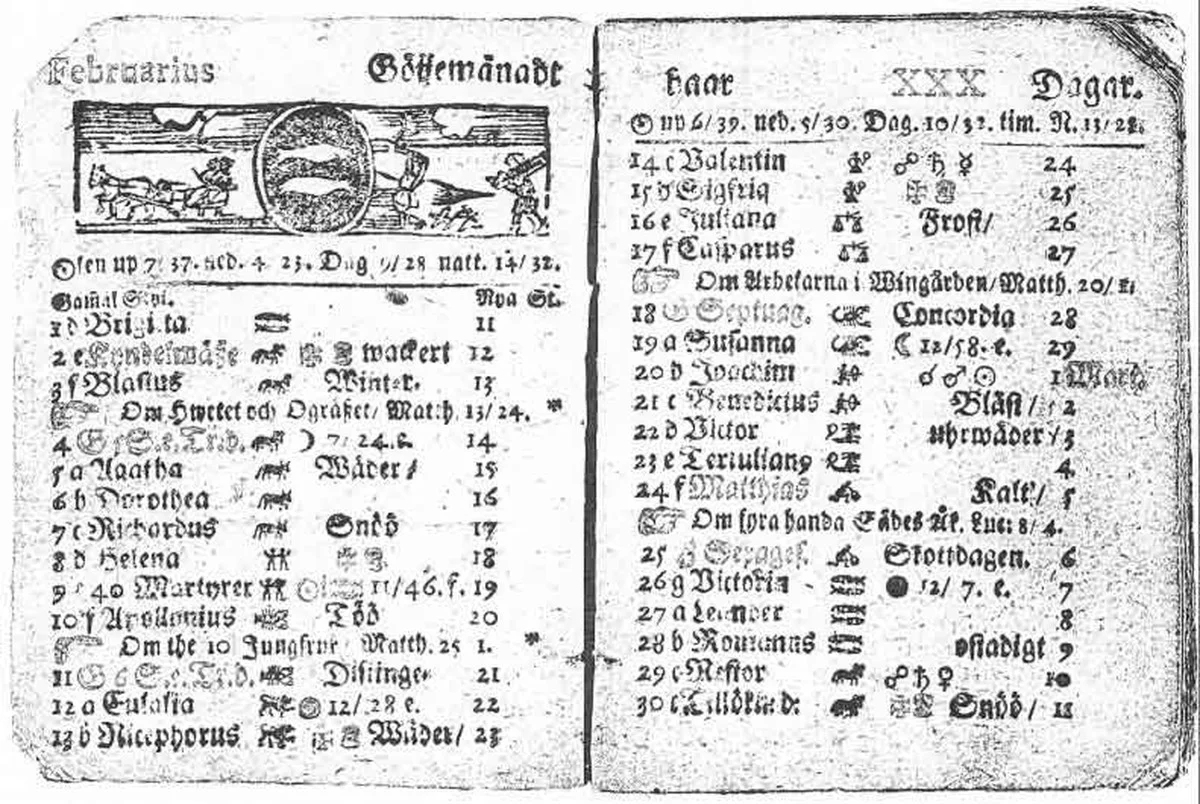 Februarius Göijemånadt
Solen up 7/37. ned. 4 23. Dag 9/28 natt. 14/32.
Gamal Styl. Nya St.
1 d Brigitta 11
2 e Kyndelmässe wackert 12
3 f Blasius Winter. 13
Om Hwetet och Ogräset/ Matth. 13/24. *
4 G 5 S. e. Tr.d. ☽ 7/24. 14
5 a Agatha Wäder/ 15
6 b Dorothea 16
7 c Richardus Snöö 17
8 d Helena 18
9 e 40 Martyrer 11/46. f. 19
10 f Apollonius Töö 20
Om the 10 Jungfrur/ Matth. 25 1. *
11 G 6 S. e. Tr.d. Distinge. 21
12 a Eulalia 12/28 e. 22
13 b Nicephorus Wäder/ 23
haar XXX Dagar.
☉ up 6/39. ned. 5/30. Dag. 10/32. tim. N. 13/28.
14 c Valentin ☍ ♄ ☿ 24
15 d Sigfrid 25
16 e Juliana Frost/ 26
17 f Casparus 27
Om Arbetarna i Wingården/ Matth. 20/1.
18 G Septuag. Concordia 28
19 a Susanna ☾ 12/58. e. 29
20 b Joachim ☌ ♂ ☉ 1 Mart.
21 c Benedictus Bläst/ 2
22 d Victor uhrwäder/ 3
23 e Tertullian9 4
24 f Matthias Kalt/ 5
Om fyra handa Sädes Åk. Luc: 8/4.
25 G Sexages. Skottdagen. 6
26 g Victoria ● 12/7. e. 7
27 a Leander 8
28 b Romanus ostadigt 9
29 c Nestor ☍ ♄ ♀ 10
30 c Tillökind: Snöö/ 11